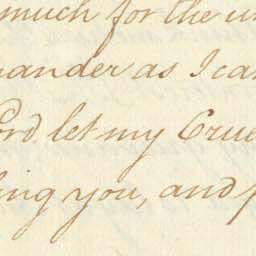 much for the un
ander as I can
ord let my Crue
ing you, and p